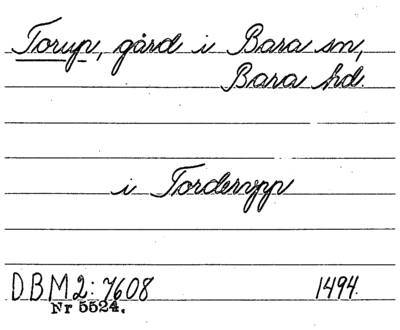 Torup, gård i Bara sn,
Bara hd.
i Torderupp
DBM2:7608 1494.
Nr 5524.